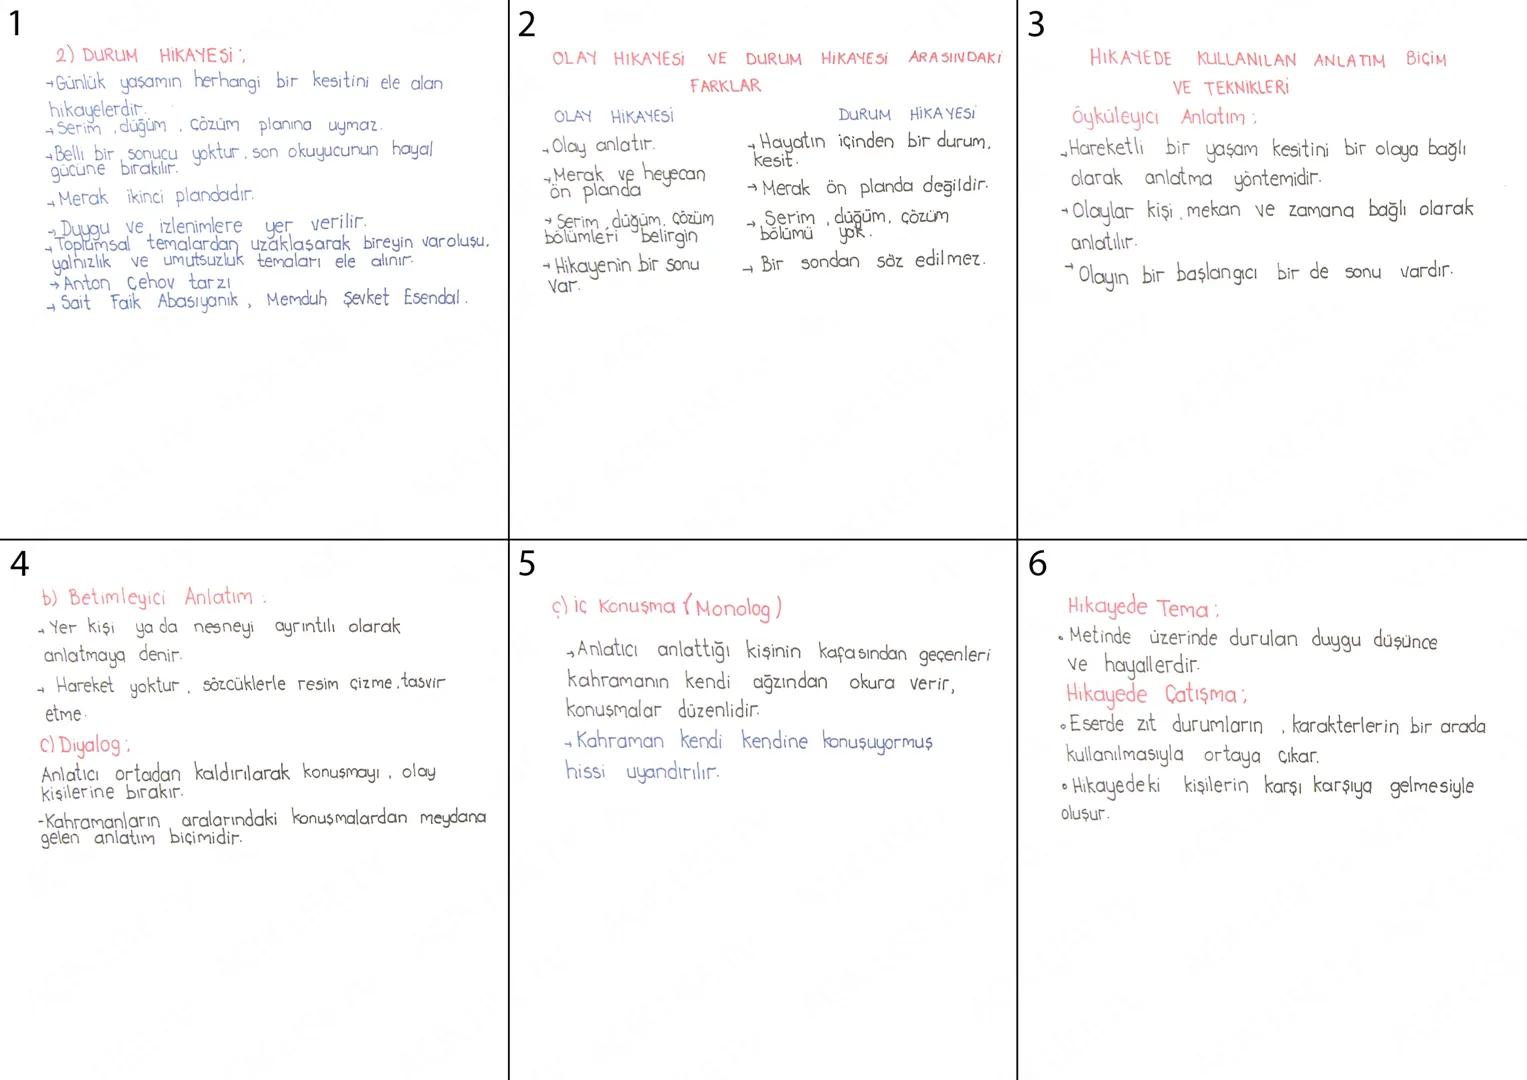 1
2) DURUM HİKAYESİ;
→Günlük yaşamın herhangi bir kesitini ele alan
hikayelerdir.
→Serim, düğüm, çözüm planına uymaz.
→Belli bir sonucu yoktur, son okuyucunun hayal
gücüne bırakılır.
→Merak ikinci plandadır.
→Duygu ve izlenimlere yer verilir.
→Toplumsal temalardan uzaklaşarak bireyin varoluşu,
yalnızlık ve umutsuzluk temaları ele alınır.
→Anton Çehov tarzı
→Sait Faik Abasıyanık, Memduh Şevket Esendal.
2
OLAY HİKAYESİ VE DURUM HİKAYESİ ARASINDAKİ
FARKLAR
OLAY HİKAYESİ
→Olay anlatır.
→Merak ve heyecan
ön planda
→Serim, düğüm, çözüm
bölümleri belirgin
→Hikayenin bir sonu
var.
DURUM HİKAYESİ
→Hayatın içinden bir durum,
kesit.
→Merak ön planda değildir.
→Serim, düğüm, çözüm
bölümü yok.
→Bir sondan söz edilmez.
3
HİKAYEDE KULLANILAN ANLATIM BİÇİM
VE TEKNİKLERİ
Öyküleyici Anlatım:
→Hareketli bir yaşam kesitini bir olaya bağlı
olarak anlatma yöntemidir.
→Olaylar kişi, mekan ve zamana bağlı olarak
anlatılır.
→Olayın bir başlangıcı bir de sonu vardır.
4
b) Betimleyici Anlatım:
→Yer kişi ya da nesneyi ayrıntılı olarak
anlatmaya denir.
→Hareket yoktur, sözcüklerle resim çizme, tasvir
etme.
C) Diyalog;
Anlatıcı ortadan kaldırılarak konuşmayı, olay
kişilerine bırakır.
-Kahramanların aralarındaki konuşmalardan meydana
gelen anlatım biçimidir.
5
ç) İç Konuşma (Monolog)
→Anlatıcı anlattığı kişinin kafasından geçenleri
kahramanın kendi ağzından okura verir,
konuşmalar düzenlidir.
→Kahraman kendi kendine konuşuyormuş
hissi uyandırılır.
6
Hikayede Tema:
• Metinde üzerinde durulan duygu düşünce
ve hayallerdir.
Hikayede Çatışma;
• Eserde zıt durumların, karakterlerin bir arada
kullanılmasıyla ortaya çıkar.
• Hikayedeki kişilerin karşı karşıya gelmesiyle
oluşur.